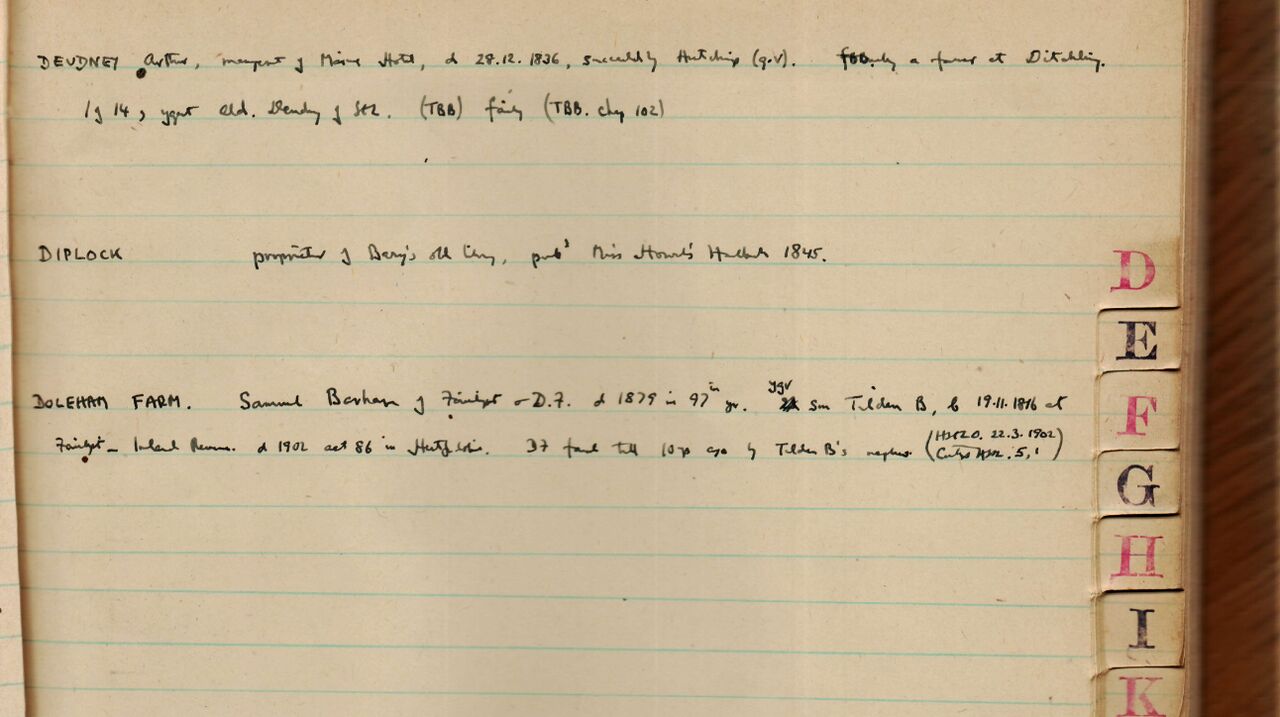 DEUDNEY Arthur, of Marine Hotel, d 28.12.1836, succeeded by Hutchings (q.v). a farmer at Ditchling.
1 of 14, ygst Ald. Deudney of (TBB) family (TBB. 102)
DIPLOCK proprietor of Barry's old library, pubd Miss Howard's 1845.
DOLEHAM FARM. Samuel Barham of Fairlight D.F. d 1879 in 97th yr. ygr son Tilden B, b 19.11.1816 at
Fairlight – Inland Revenue. d 1902 aet 86 in DF till 10 yrs ago by Tilden B's nephew (HSLO. 22.3.1902)
D
E
F
G
H
I
K